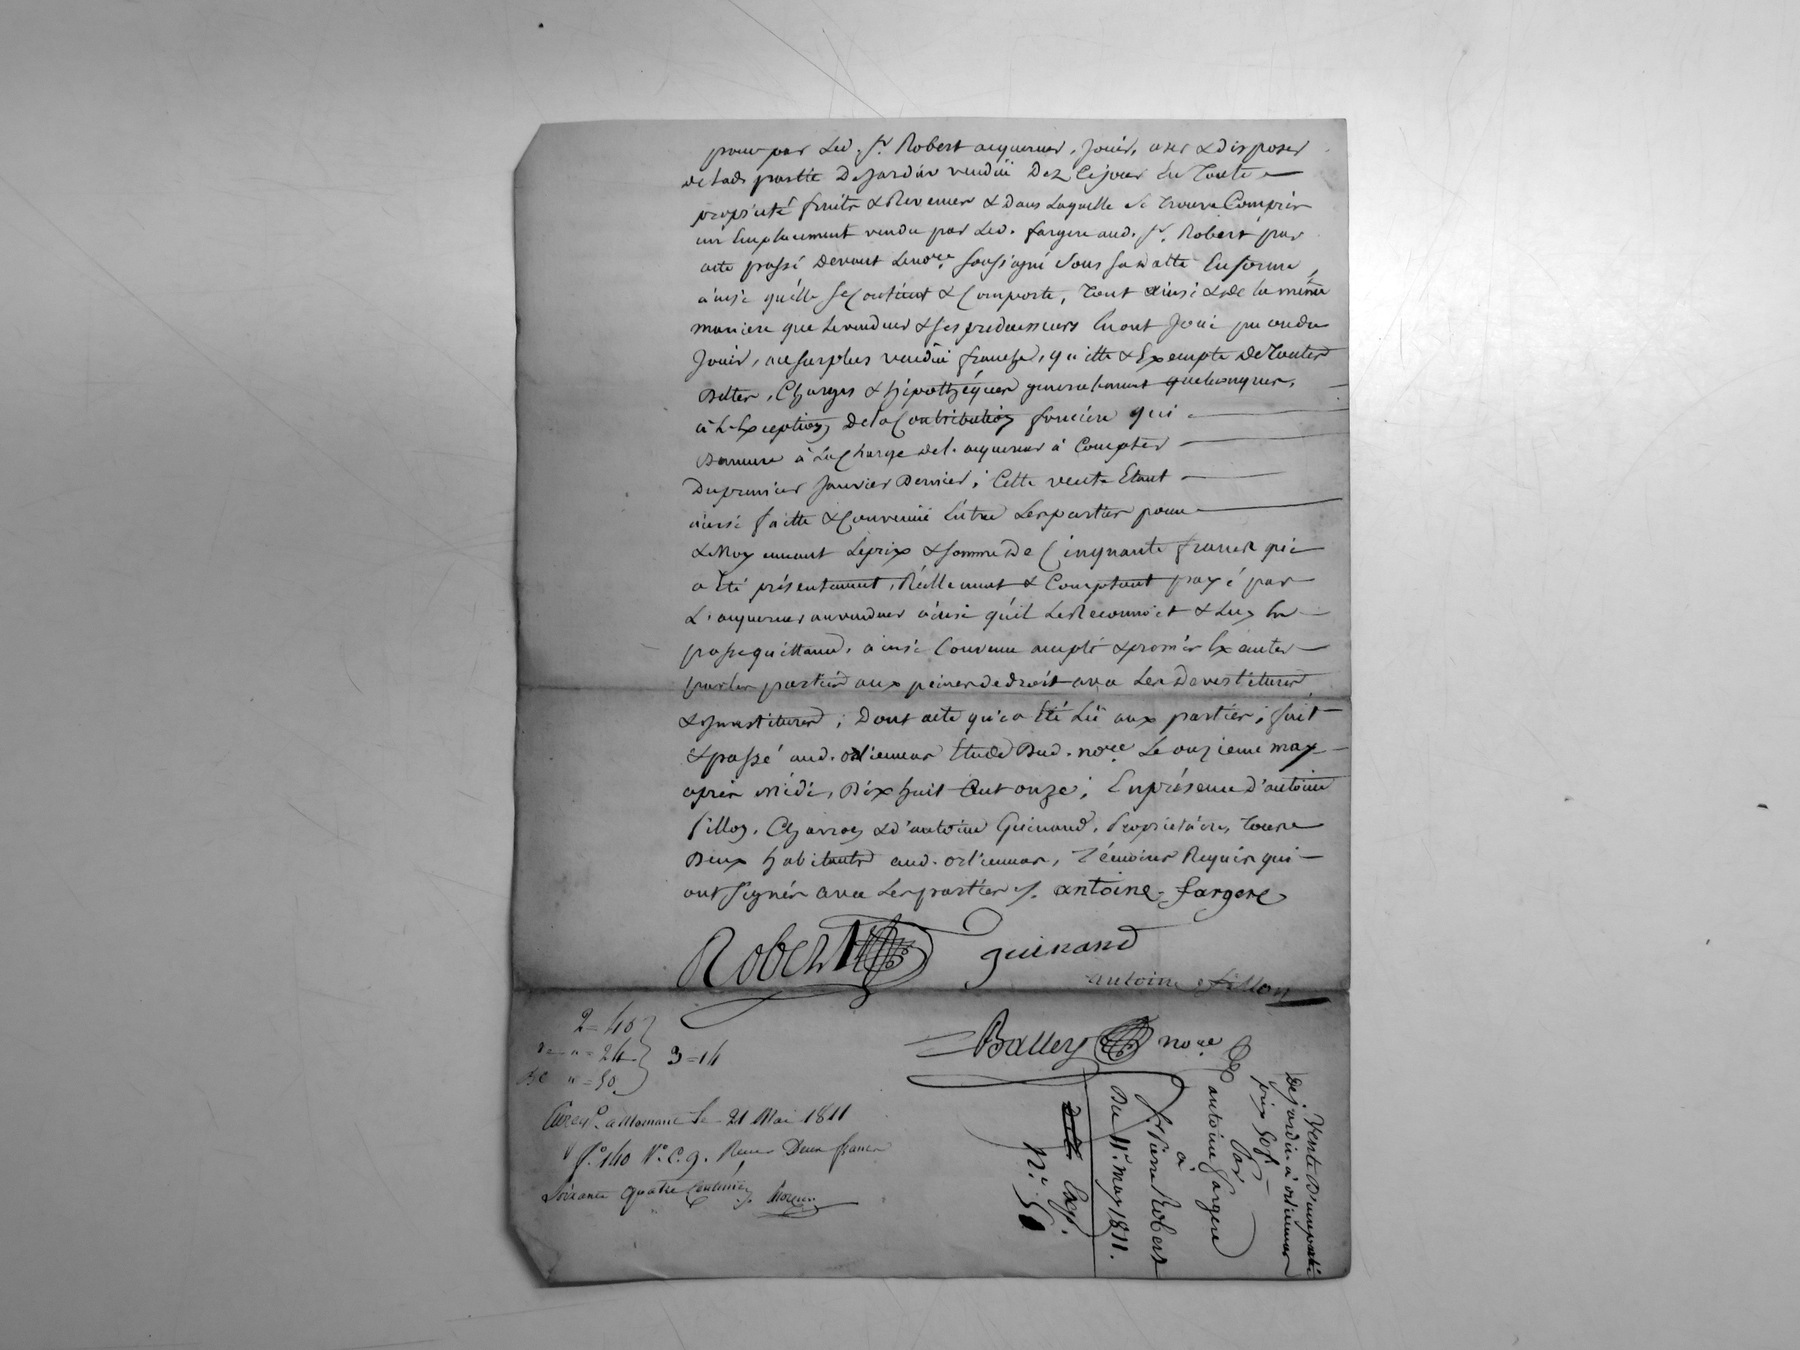 pour par Led. Sr. Robert acquereur, Jouir, user & disposer
de lad. partie De Jardin vendüe Dez Cejour En Toute
propriété fruits & Revenus & Dans Laquelle Se trouve Compris
un Emplacement vendu par Led. fargere aud. Sr. Robert par
acte passé Devant Lenore. soussigné Sous sa datte En forme,
ainsi quelle se Contient & Comporte, Tout ainsi & de la même
maniere que Levendeur & ses predecesseurs En ont Joui pu ou du
Jouir, au surplus vendüe franche, quitte & Exempte De Toutes
Dettes, Charges & hipothéques generalement quelconques,
à L'Exception De la Contribution fonciere qui
Demeure à La Charge de L'acquereur à Compter
Du premier Janvier Dernier; Cette vente Etant
ainsi faitte & Convenüe Entre Les parties pour
& Moyennant Le prix & somme De Cinquante francs qui
a Eté présentement, Réellement & Comptant payé par
L'acquereur au vendeur ainsi qu'il Le Reconnoit & Luy En
passe quittance, ainsi Convenu accepté & promis Exécuter
par Les parties aux peines de droit avec Les Devestitures
& Investitures; Dont acte qui a Eté Lû aux parties; fait
& passé aud. ordiennas Etude Dud. nore. Le onzieme may
après midi, Dix huit Cent onze; En présence d'antoine
fillon, Charron & d'antoine Guinand, Proprietaires, Tous
Deux habitants aud. ordiennas, Témoins Requis qui
ont signés avec Les parties ./. antoine fargere
Robert guinand
antoine fillon
Balley nore.
2 = 40
24
50
3 = 14
Enregé. a Mornant Le 21 Mai 1811
fo. 140 Vo. C. 9. Reçu Deux francs
Soixante Quatre Centimes
Vente D'une partie
De jardin à ordiennas
prix 50f.
Par
antoine fargere
à
Sr. Pierre Robert
Du 11e. may 1811.
Exp.
No. 50